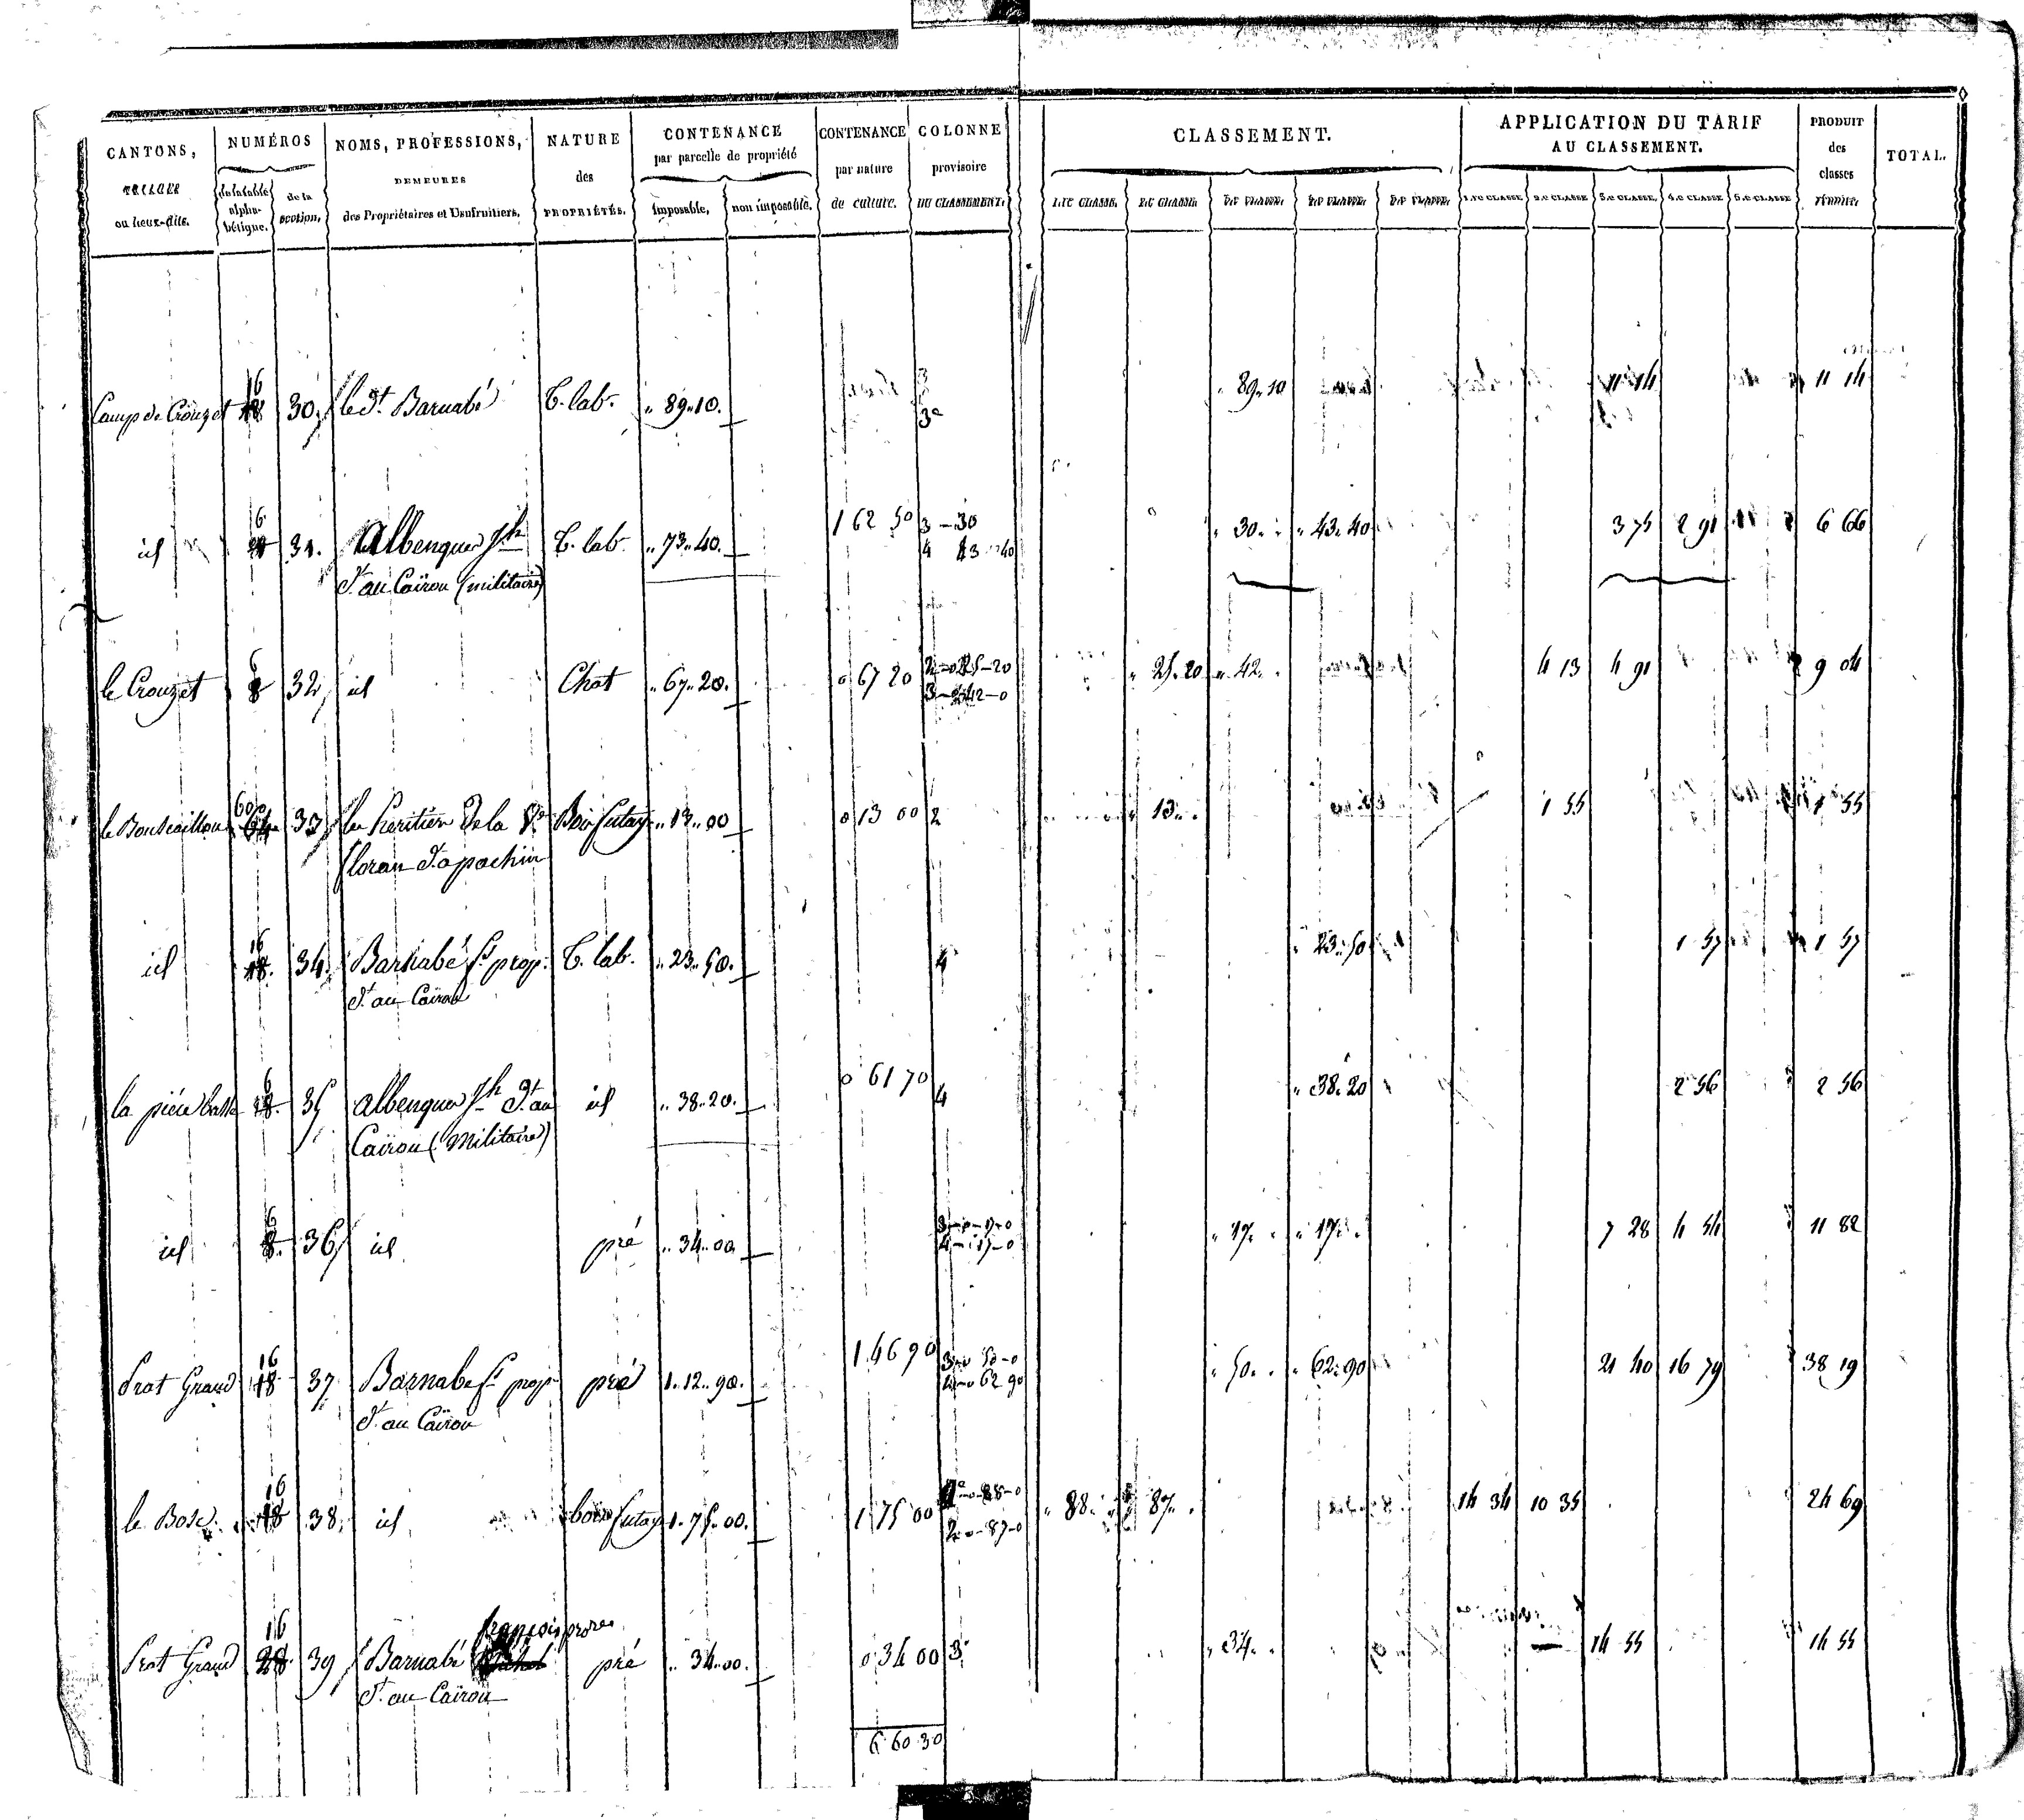 CANTONS,
ou lieux-dits.
NUMÉROS
de la table alpha-bétique.
de la section.
NOMS, PROFESSIONS,
DEMEURES
des Propriétaires et Usufruitiers.
NATURE
des
PROPRIÉTÉS.
CONTENANCE
par parcelle de propriété
imposable.
non imposable.
CONTENANCE
par nature
de culture.
COLONNE
provisoire
DU CLASSEMENT.
CLASSEMENT.
1.re CLASSE. 2.e CLASSE. 3.e CLASSE. 4.e CLASSE. 5.e CLASSE.
APPLICATION DU TARIF
AU CLASSEMENT.
1.re CLASSE 2.e CLASSE 3.e CLASSE. 4.e CLASSE 5.e CLASSE
PRODUIT
des
classes
réunies.
TOTAL.
Camp de Crouzet 16 18 30 led.t Barnabé T. lab. „ 89„10. 3 3e „ 89„10 11 14 11 14
id 6 31. Albenque Jh T. lab. „ 73„40. 1 62 50 3 – 30 „ 30„ „ „ 43„40 3 75 2 91 6 66
4 43 40
d.t au Caïrou (militaire)
le Crouzet 6 8 32 id Chat „ 67„20. 0 67 20 2–0 25–20 „ 25„20 „ 42„ „ 4 13 4 91 9 04
3–0 42–0
60 64 33 les héritiers de la Bois futaye „ 13„00 0 13 00 2 „ 13„ „ 1 55 1 55
floran
id 16 18. 34. Barnabé f.s prop. T. lab. „ 23„50. 4 „ 23„50 1 57 1 57
d.t au Caïrou
la pièce basse 6 8. 35 Albenque Jh d.t au id „ 38„20. 0 61 70 4 „ 38„20 2 56 2 56
Caïrou (Militaire)
id 6 8. 36 id pré „ 34„00. 3–0–17–0 „ 17„ „ „ 17„ „ 7 28 4 54 11 82
4–0–17–0
Prat Grand 16 18 37 Barnabé f.s prop. pré 1„12„90. 1 46 90 3–0 50–0 „ 50„ „ „ 62„90 21 40 16 79 38 19
4–0 62 90
d.t au Caïrou
le Bosc 16 18 38. id bois futaye 1„75„00. 1 75 00 1–0–88–0 „ 88„ „ 87„ „ 14 34 10 35 24 69
2–0–87–0
françois propre
Prat Grand 16 28 39 Barnabé pré „ 34„00. 0 34 00 3 „ 34„ „ 14 55 14 55
d.t au Caïrou
6 60 30